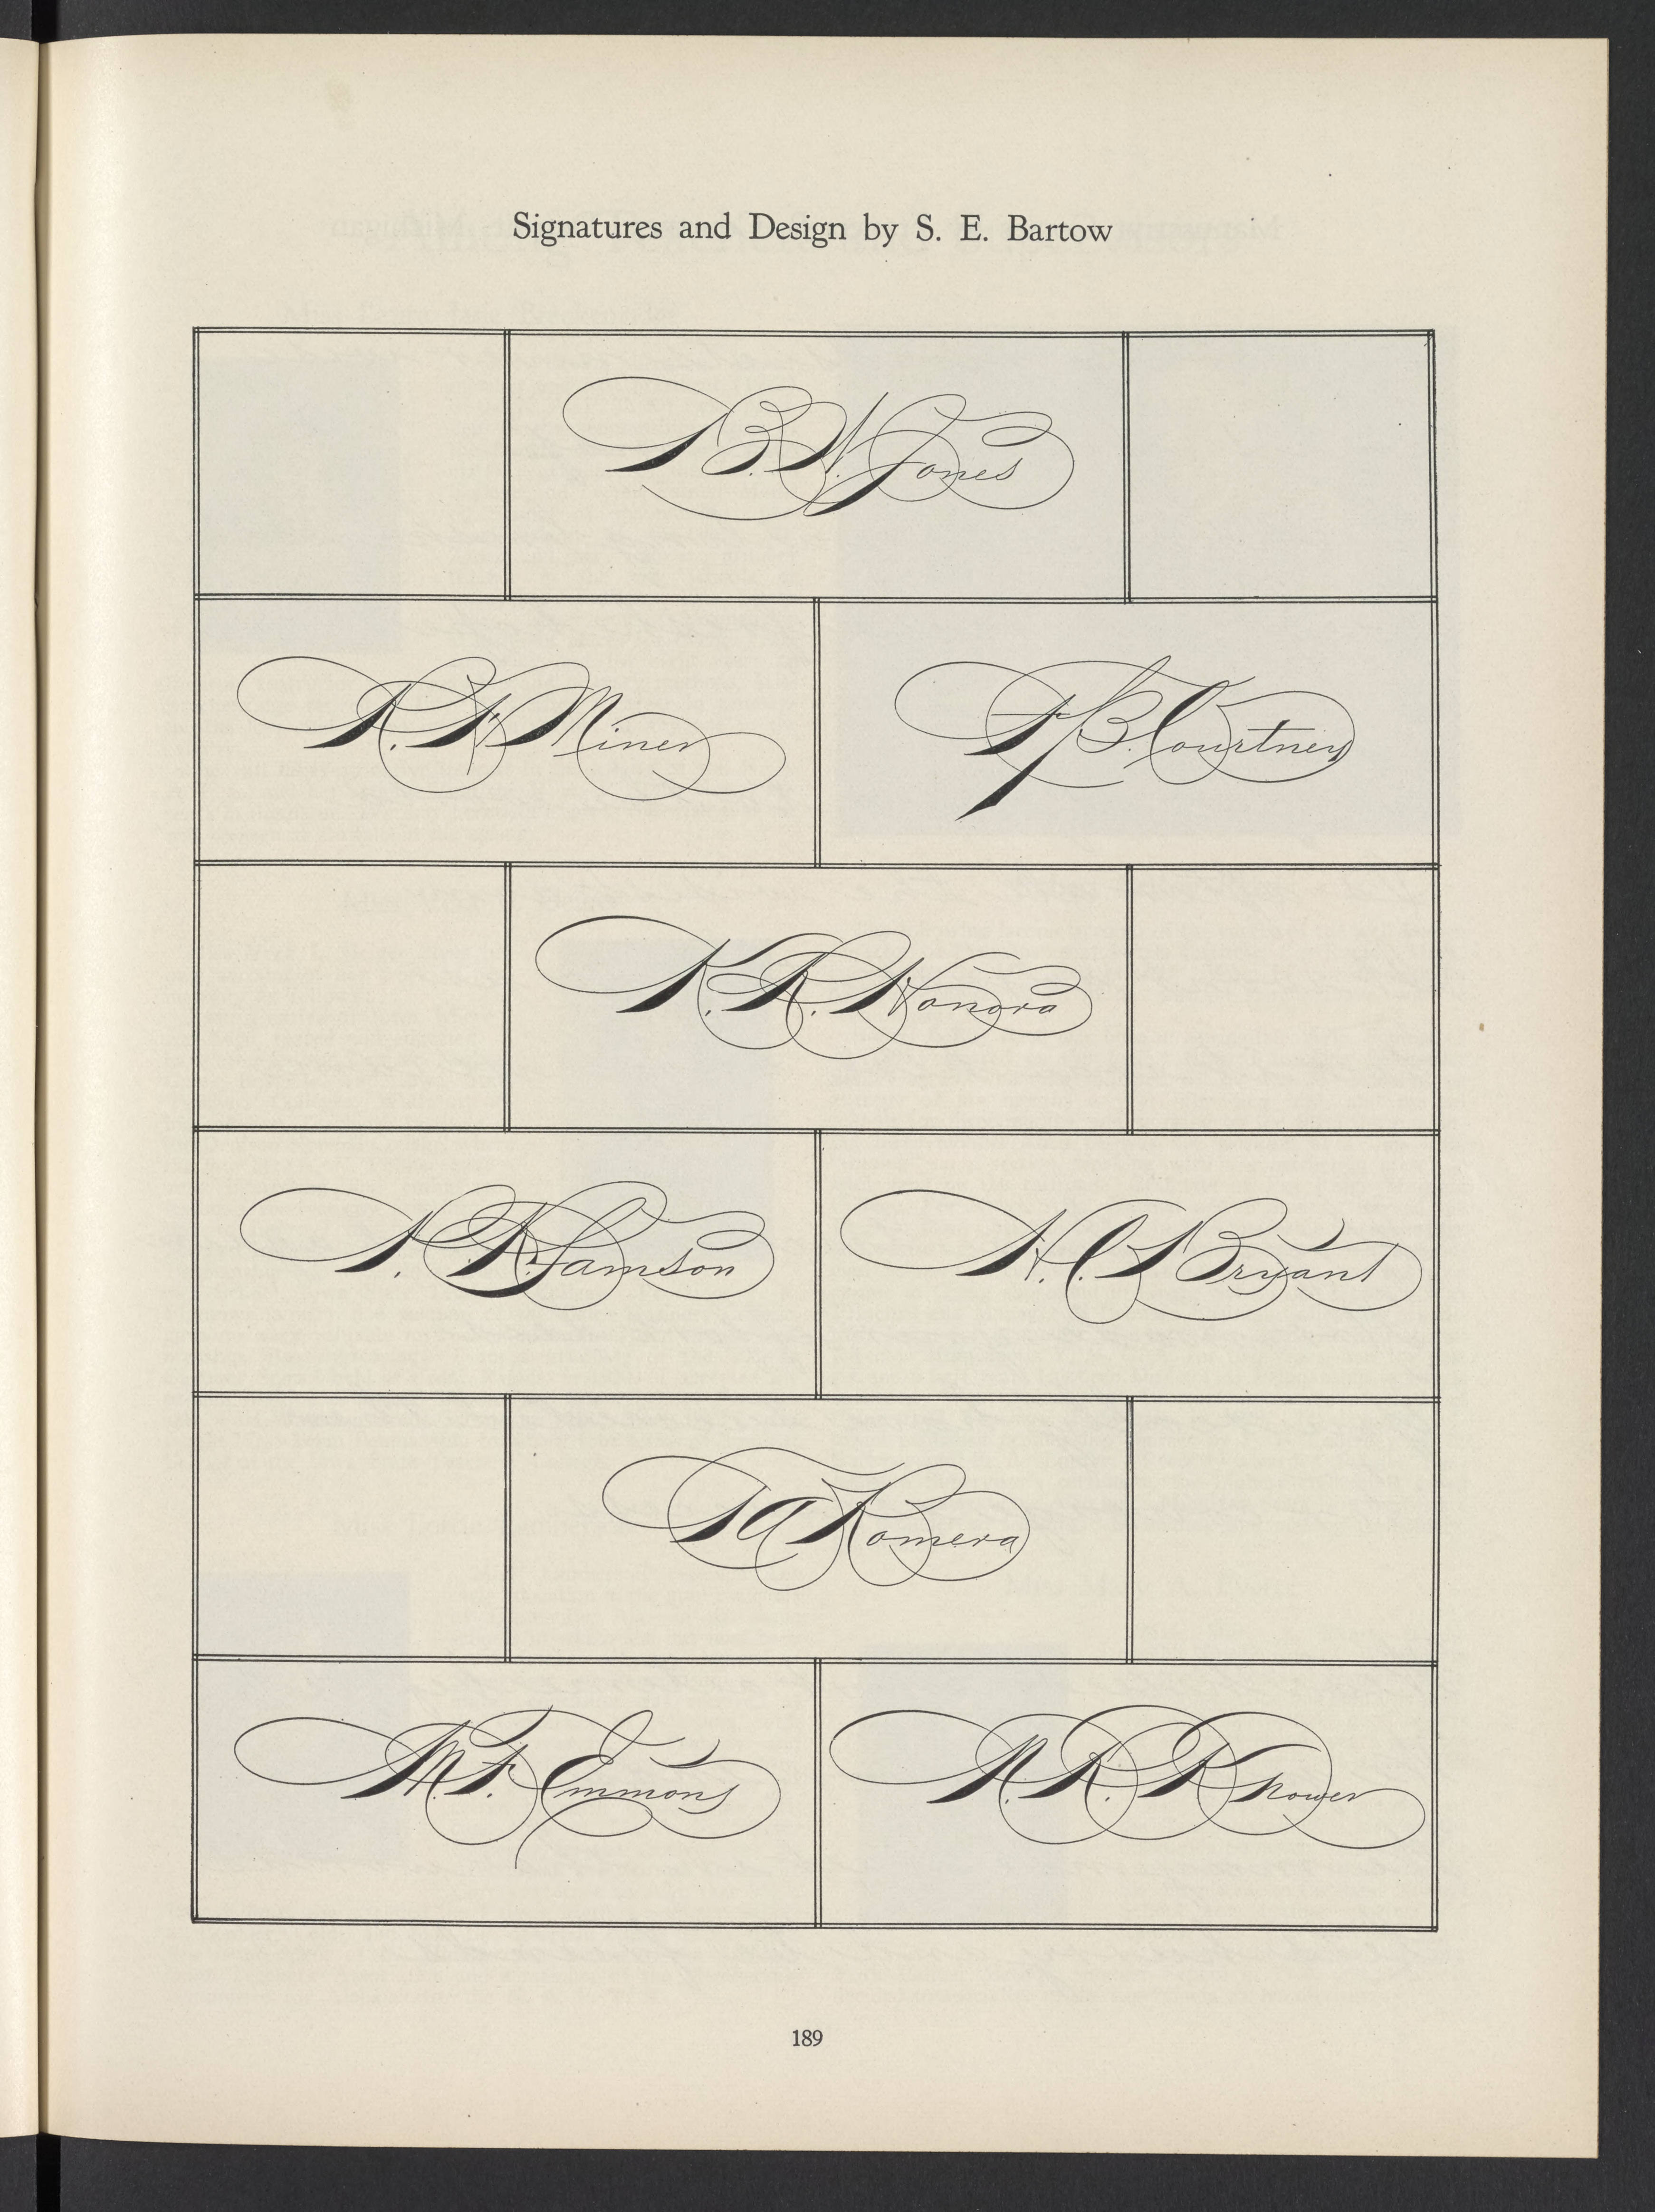 Signatures and Design by S. E. Bartow
B. W. Jones
R. F. Miner
F. B. Courtney
K. R. Nonora
Samson
H. C. Bryant
Romera
M. F. Emmons
Knower
189